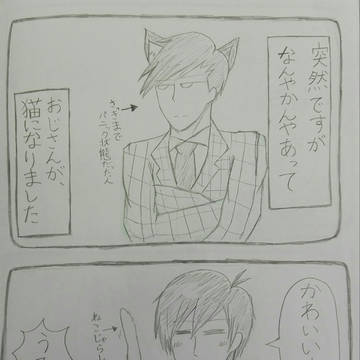 突然ですが
なんやかんやあって
おじさんが、
猫になりました
さっきまで
パニック状態だった人
かわいい
ねこじゃら